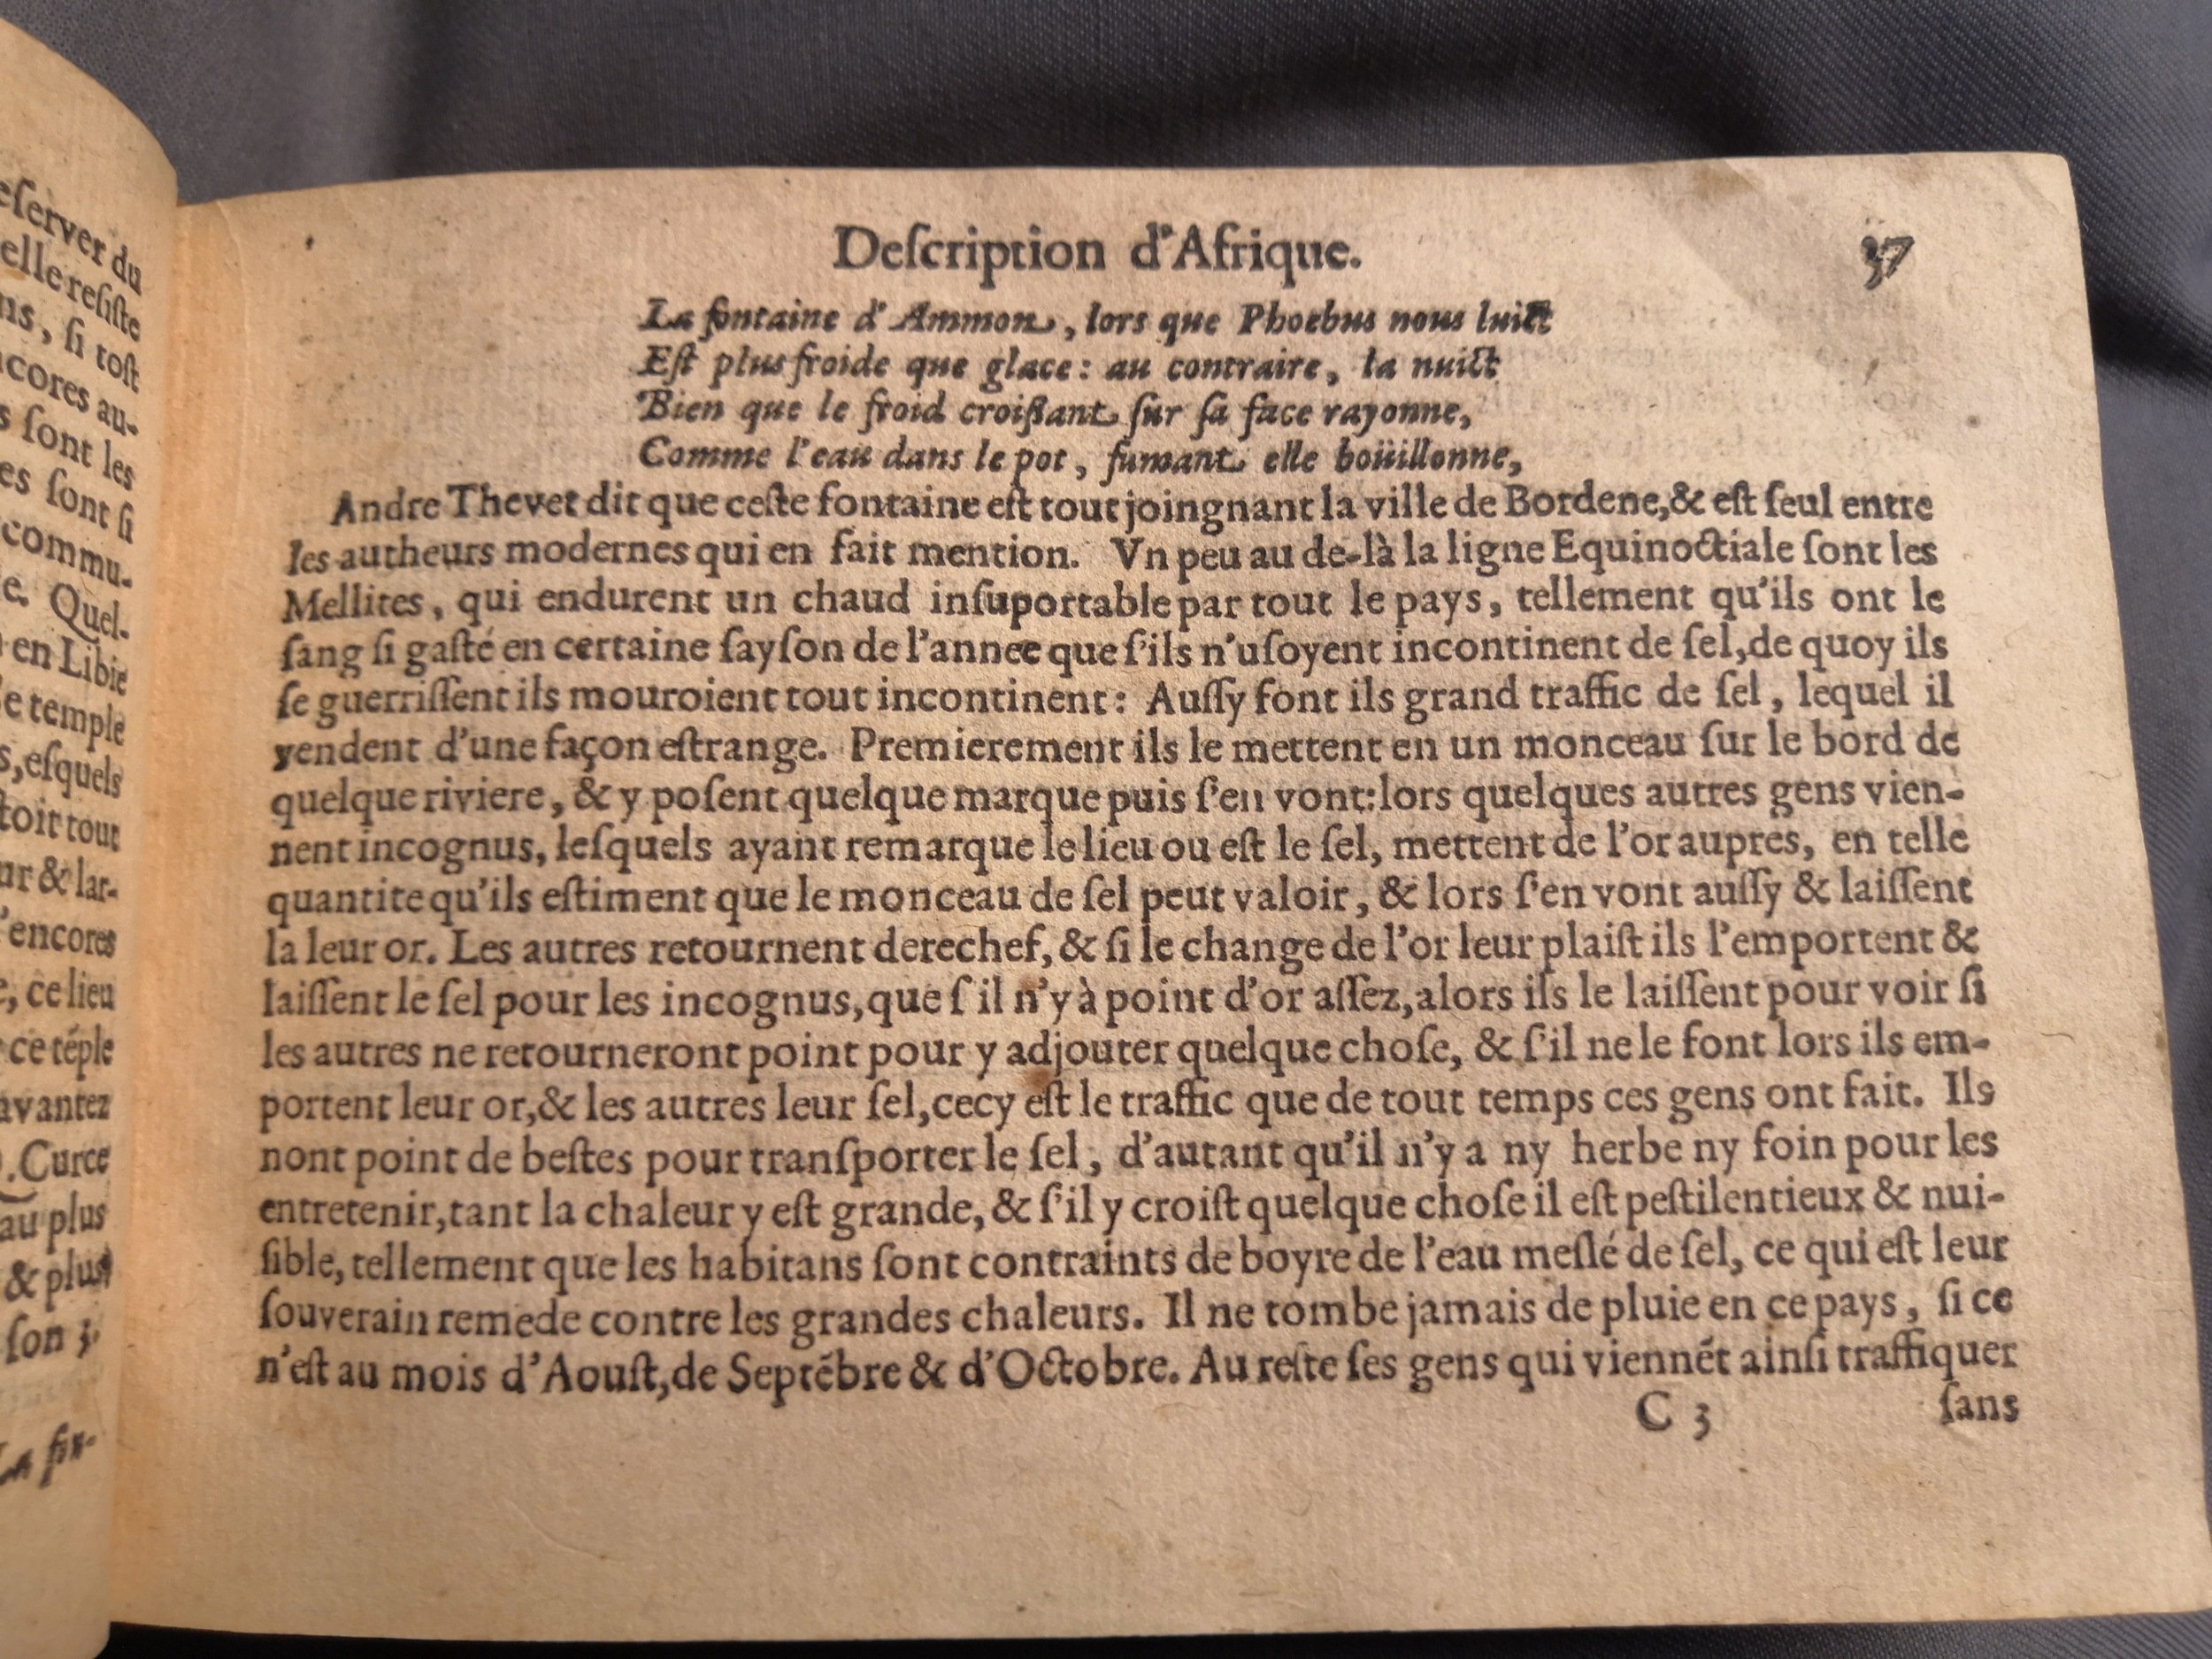 eſerver du
elle reſiſte
ns, ſi toſt
ncores au-
s ſont les
es ſont ſi
commu-
e. Quel-
en Libie
e temple
s, eſquels
toit tout
ur & lar-
'encores
e, ce lieu
ce tẽple
avantez
.Curce
au plus
& plus
ſon 3.
La fin-
Deſcription d'Afrique. 37
La fontaine d'Ammon, lors que Phoebus nous luict
Eſt plus froide que glace: au contraire, la nuict
Bien que le froid croiſſant ſur ſa face rayonne,
Comme l'eau dans le pot, fumant elle boüillonne,
Andre Thevet dit que ceſte fontaine eſt tout joingnant la ville de Bordene,& eſt ſeul entre
les autheurs modernes qui en fait mention. Vn peu au de-là la ligne Equinoctiale ſont les
Mellites, qui endurent un chaud inſuportable par tout le pays, tellement qu'ils ont le
ſang ſi gaſté en certaine ſayſon de l'annee que ſ'ils n'uſoyent incontinent de ſel,de quoy ils
ſe guerriſſent ils mouroient tout incontinent: Auſſy font ils grand traffic de ſel, lequel il
vendent d'une façon eſtrange. Premierement ils le mettent en un monceau ſur le bord de
quelque riviere, & y poſent quelque marque puis ſ'en vont:lors quelques autres gens vien-
nent incognus, leſquels ayant remarque le lieu ou eſt le ſel, mettent de l'or aupres, en telle
quantite qu'ils eſtiment que le monceau de ſel peut valoir, & lors ſ'en vont auſſy & laiſſent
la leur or. Les autres retournent derechef, & ſi le change de l'or leur plaiſt ils l'emportent &
laiſſent le ſel pour les incognus,que ſ'il n'y à point d'or aſſez,alors ils le laiſſent pour voir ſi
les autres ne retourneront point pour y adjouter quelque choſe, & ſ'il ne le font lors ils em-
portent leur or,& les autres leur ſel,cecy eſt le traffic que de tout temps ces gens ont fait. Ils
nont point de beſtes pour tranſporter le ſel, d'autant qu'il n'y a ny herbe ny foin pour les
entretenir,tant la chaleur y eſt grande, & ſ'il y croiſt quelque choſe il eſt peſtilentieux & nui-
ſible, tellement que les habitans ſont contraints de boyre de l'eau meſlé de ſel, ce qui eſt leur
ſouverain remede contre les grandes chaleurs. Il ne tombe jamais de pluie en ce pays, ſi ce
n'eſt au mois d'Aouſt,de Septẽbre & d'Octobre. Au reſte ſes gens qui viennẽt ainſi traffiquer
C 3 ſans